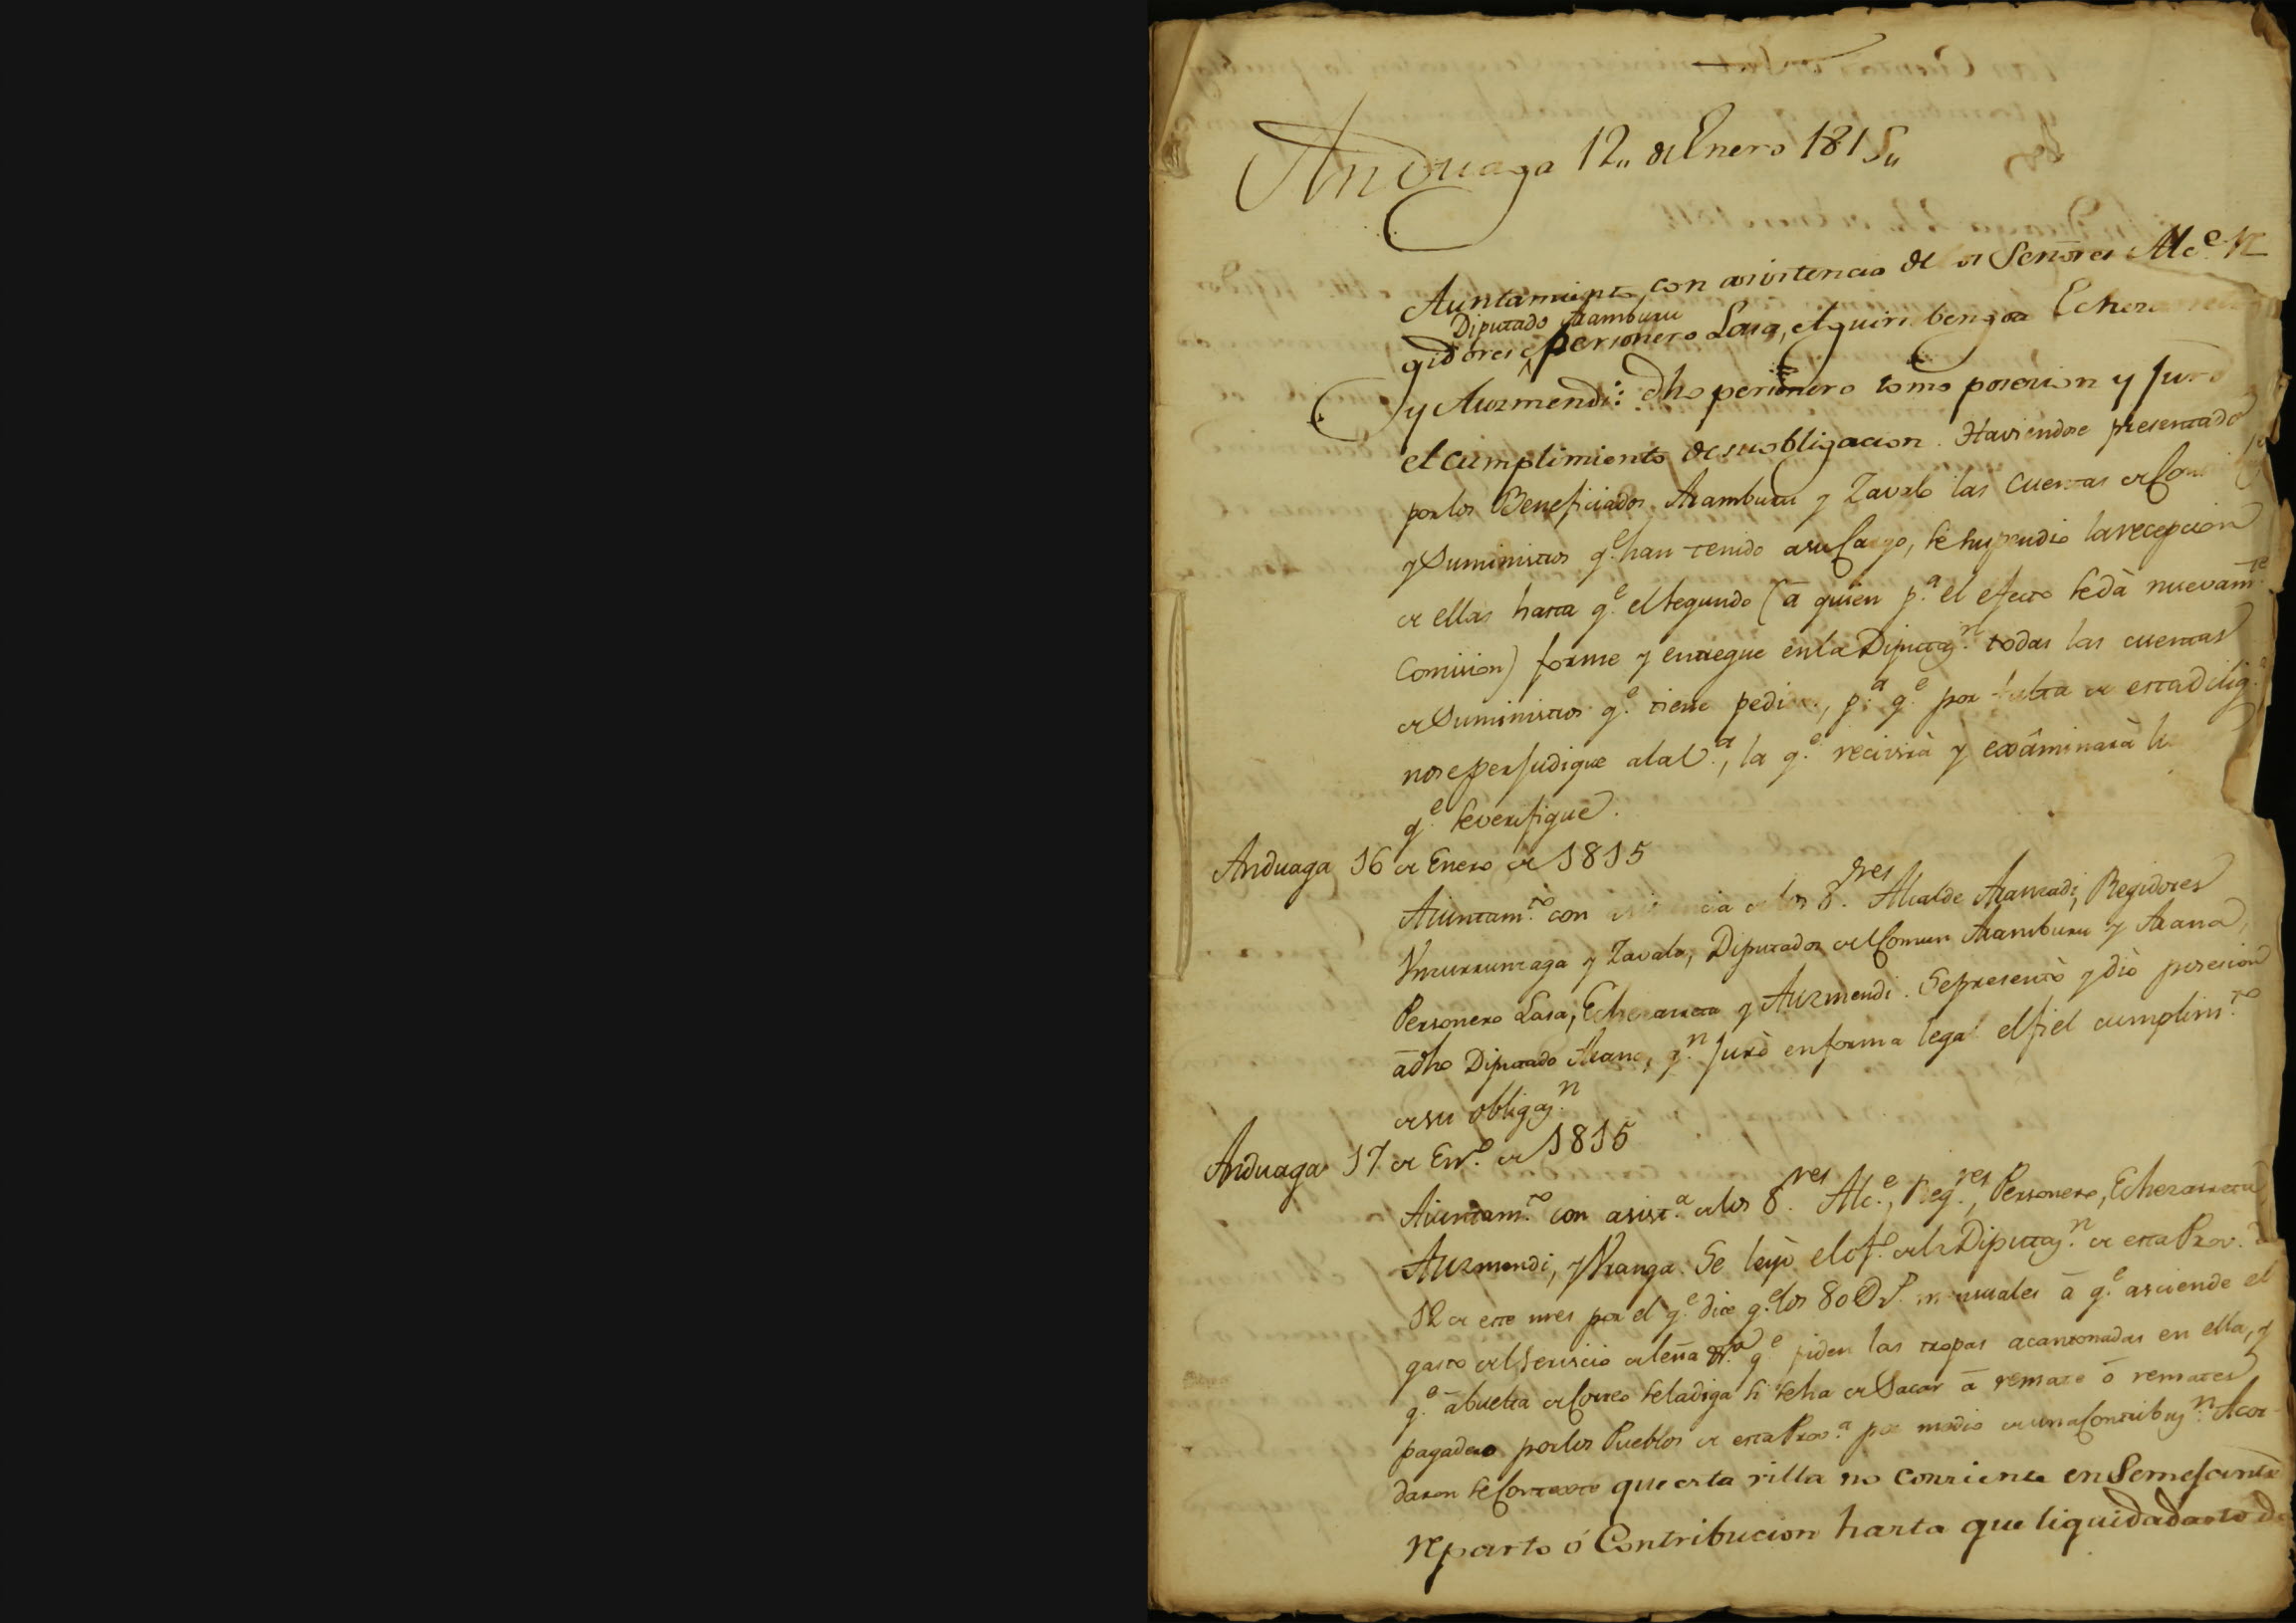 Anduaga 12,, de Enero 1815,,
Auntamiento, con asistencia de los Señores Alc.e Re
Diputado Aramburu
gidores, personero Lasa, eleguiribengoa Echezarreta
y Auzmendi: dho personero tomo posesion y Juró
el cumplimiento de su obligacion. Haviendose presentado
por los Beneficiados Aramburu y Zavalo las cuentas de
y Suministros q.e han tenido a su Cargo, se suspendio la recepcion
de ellas hasta q.e el Segundo (â quien p.a el efecto se dà nuevam.te
Comision) forme y entregue en la Diputaz.n todas las cuentas
de Suministros q.e tiene pedidas, p.a q.e por falta de esta dilig.a
no se perjudique a la V.a, la q.e recivirà y exâminarà
q.e se verifique.
Anduaga 16 de Enero de 1815
Aiuntam.to con asistencia de los S.res Alcalde Aranzadi, Regidores
Ynzurrunzaga y Zavalo, Diputados del Comun Aramburu y Arana,
Personero Lasa, Echezarreta y Auzmendi. Se presentò y diò posesion
â dho Diputado Arana, q.n Jurò en forma legal el fiel cumplim.to
de su obligaz.n
Anduaga 17 de En.o de 1815
Aiuntam.to con asist.a de los S.res Alc.e, Reg.res, Personero, Echezarreta
Auzmendi, y Uranga. Se leyò el of.o de la Diputaz.n de esta Prov.a
12 de este mes por el q.e dice q.e los 80 mensuales â q.e asciende el
gasto del Servicio de leña q.e piden las tropas acantonadas en ella, y
q.e â buelta de Correo se la diga si se ha de Sacar â remate ô remates
pagadero por los Pueblos de esta Prov.a por medio de una Contribuz.n Acor-
daron se Contexte que esta villa no conviene en Semejante
reparto ó Contribucion hasta que liquidada